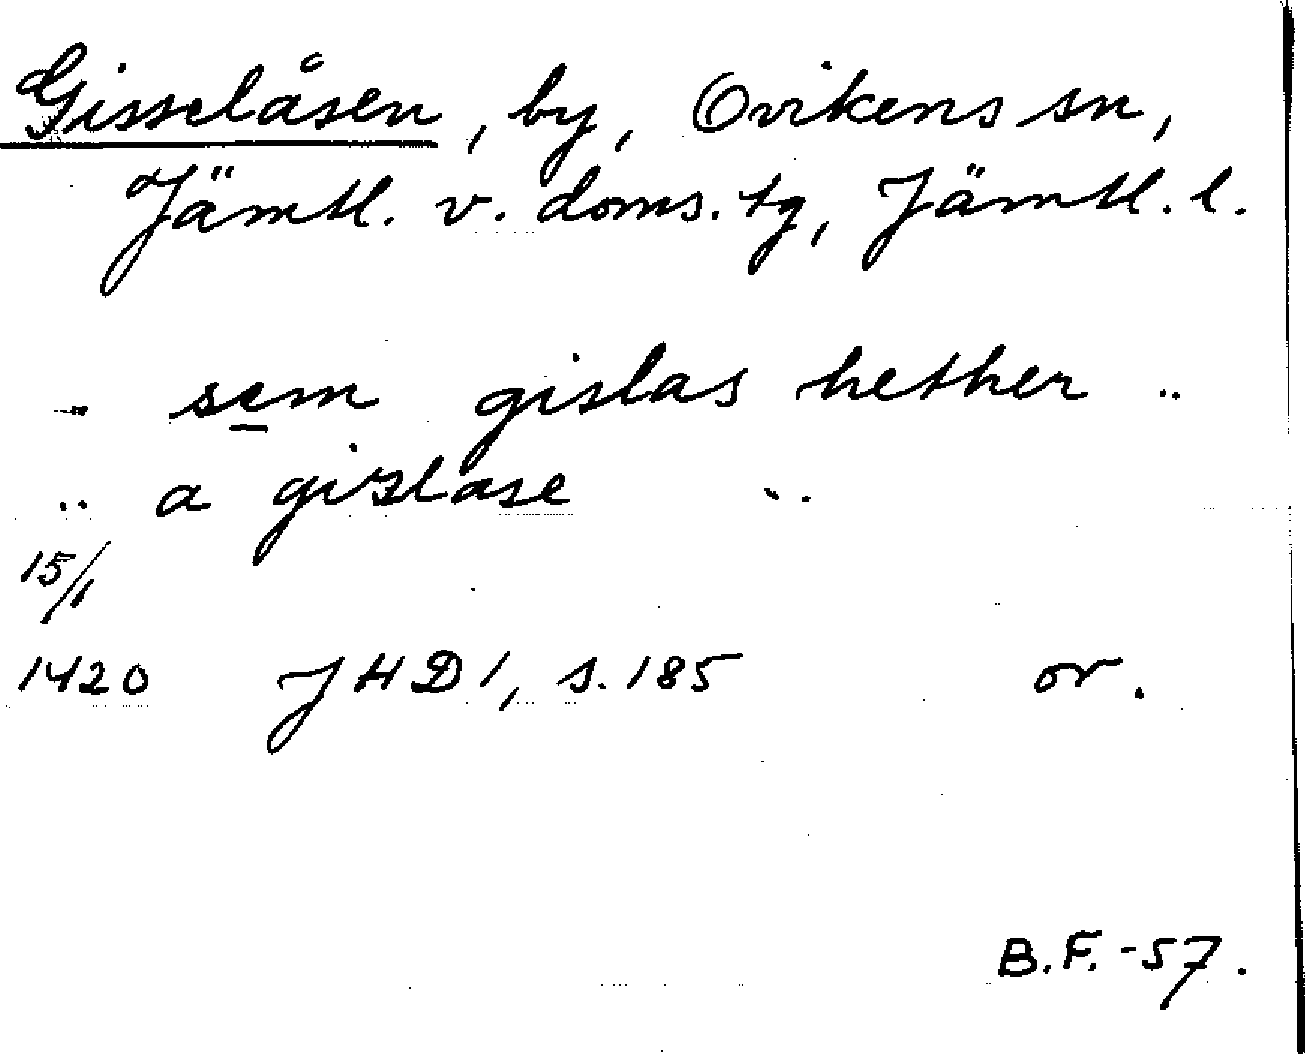 Gisselåsen, by, Ovikens sn,
Jämtl. v. doms. tg, Jämtl. l.
.. sem gislas hether ..
.. a gislase ..
15/1
1420 JHD 1, s. 185 or.
B.F. -57.